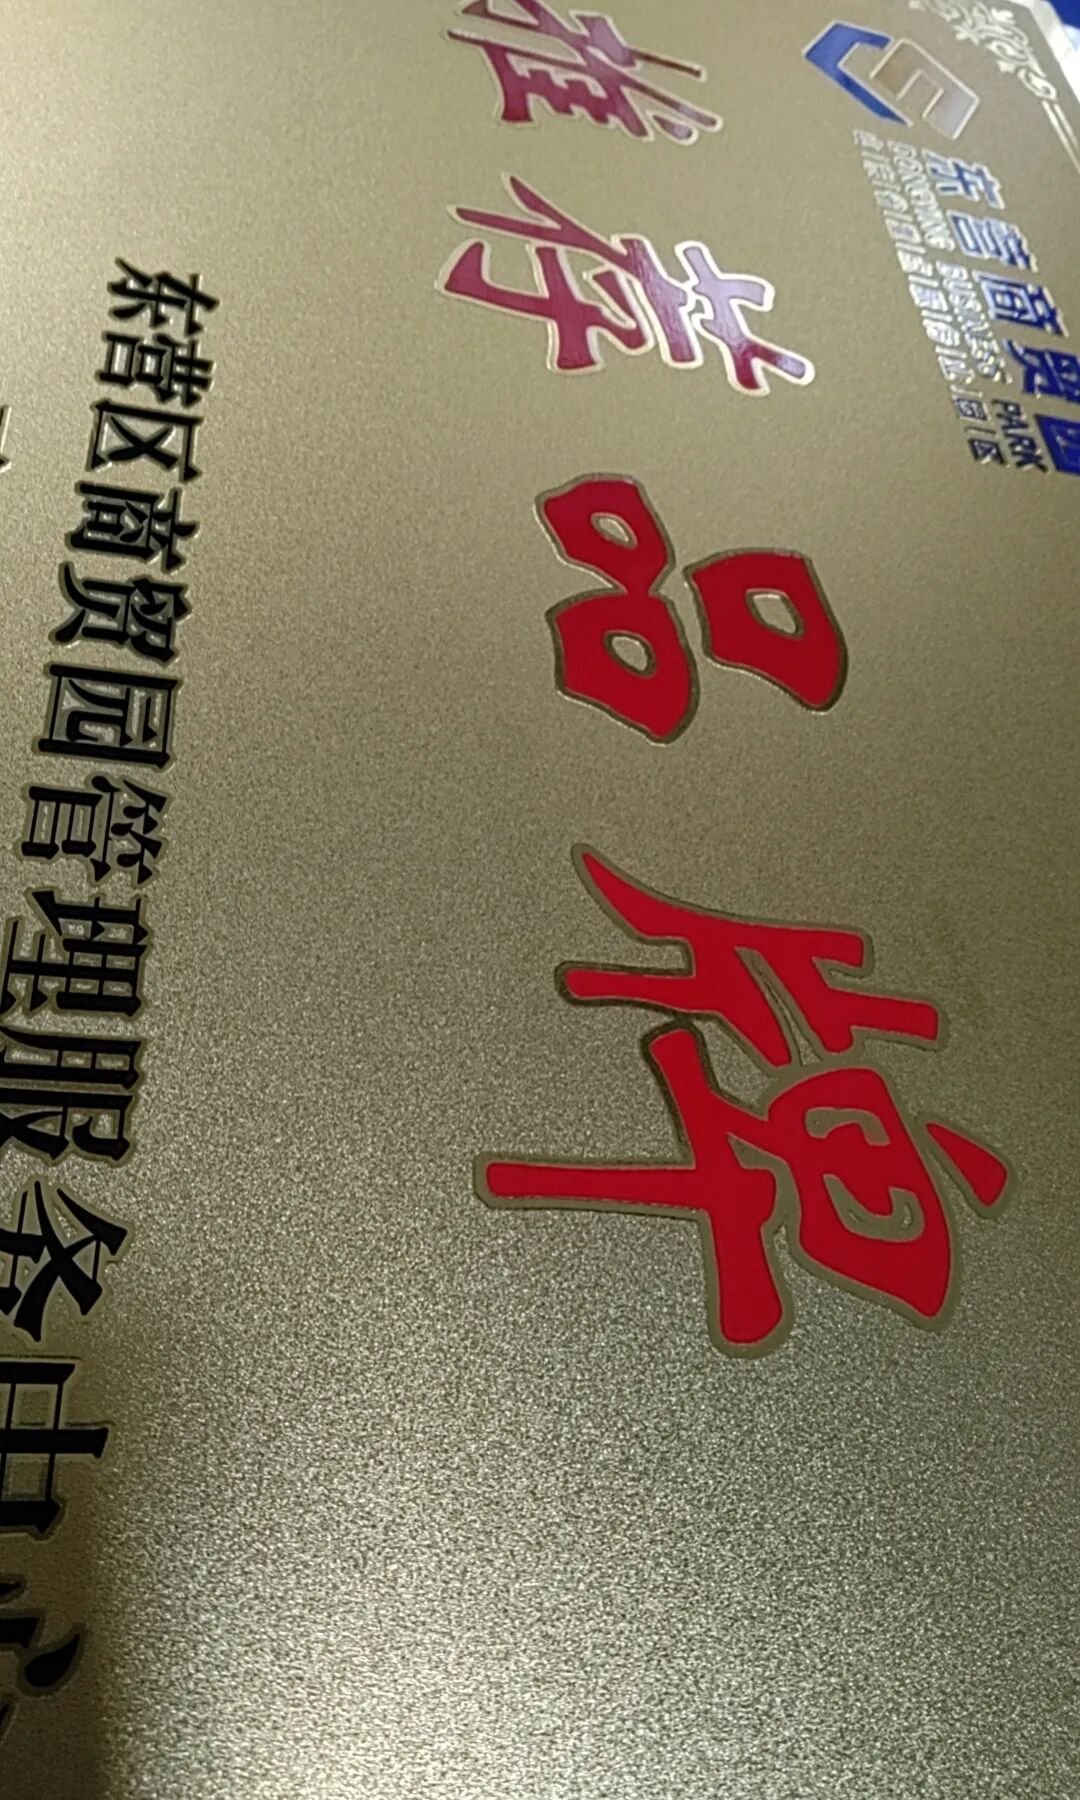 东营商贸园
DONGYING BUSINESS PARK
推荐品牌
东营区商贸园管理服务中心